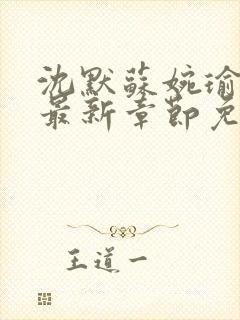 沈默蘇婉瑜
最新章節免
王道一